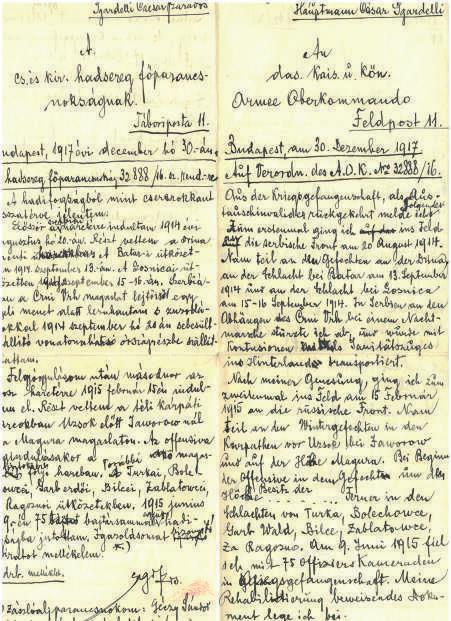 Igardelli Caesar százados
A
cs. és kir. hadsereg főparancs-
nokságnak.
Tábori posta 11.
udapest, 1917 évi december hó 30-án
hadsereg főparancsnokság 32888/16. sz. rend.
A hadifogságból mint cserérokkant
jelentem
1914
augusztus hó 20-án. Részt vettem a Drina
A Batar-i ütközet-
1914. szeptember 13-án. A Losnicai üt-
közetben szeptember 15-16-án. Szerbiá-
a Crni Vrh magaslat lejtőiről egy
éjjeli menet alatt lezuhantam s zuzódá-
sokkal 1914 szeptember hó 20án sebesült
szállító vonaton az ország részébe szállít-
tattam.
Felgyógyulásom után másodszor az
orosz harctérre 1915 február 15én indul-
tam el. Részt vettem a téli kárpáti
harcokban Uzsok előtt Jaworow nál
a Magura magaslaton. Az offensiva
Turkai, Bole-
chowci, Garb erdői, Bilcei, Zablatowcei,
Ragosnoi ütközetekben. 1915 junius
9-én 75 bajtársammal hadi-
fogságba jutottam. Igazolásomat
iratot mellékelem.
1 drb. melléklet.
Zászlóaljparancsnokom: Géczy Sándor
Hauptmann Cäsar Igardelli
An
das Kais. u. Kön.
Armee Oberkommando
Feldpost 11.
Budapest, am 30. Dezember 1917
Auf Verordn. des A.O.K. No 32888/16.
Aus der Kriegsgefangenschaft, als Aus-
tauschinvalide rückgekehrt melde ich folgendes
Zum erstenmal ging ich ins Feld
auf die serbische Front am 20 August 1914.
Nam teil an den Gefechten an der Drina
an der Schlacht bei Batar am 13. September
1914 und an der Schlacht bei Losnica
am 15-16 September 1914. In Serbien an den
Abhängen des Crni Vrh bei einem Nacht-
marsche stürzte ich ab, und wurde mit
Kontusionen Sanitätszuges
ins Hinterland transportiert.
Nach meiner Genesung, ging ich zum
zweitenmal ins Feld am 15 Februar
1915 an die russische Front. Nam
teil an den Wintergefechten in den
Karpathen vor Ursoc bei Jaworow
und auf der Höhe Magura. Bei Beginn
der Offensive in dem Gefechte um den
Besitz der Höhe ..... Ferner in den
Schlachten von Turka, Bolechowce,
Garb Wald, Bilce, Zablatowce,
Za Ragosno. Am 9. Juni 1915 fiel
ich mit 75 Offiziers Kameraden
in Kriegsgefangenschaft. Meine
Rehabilitierung beweisendes Doku-
ment lege ich bei.